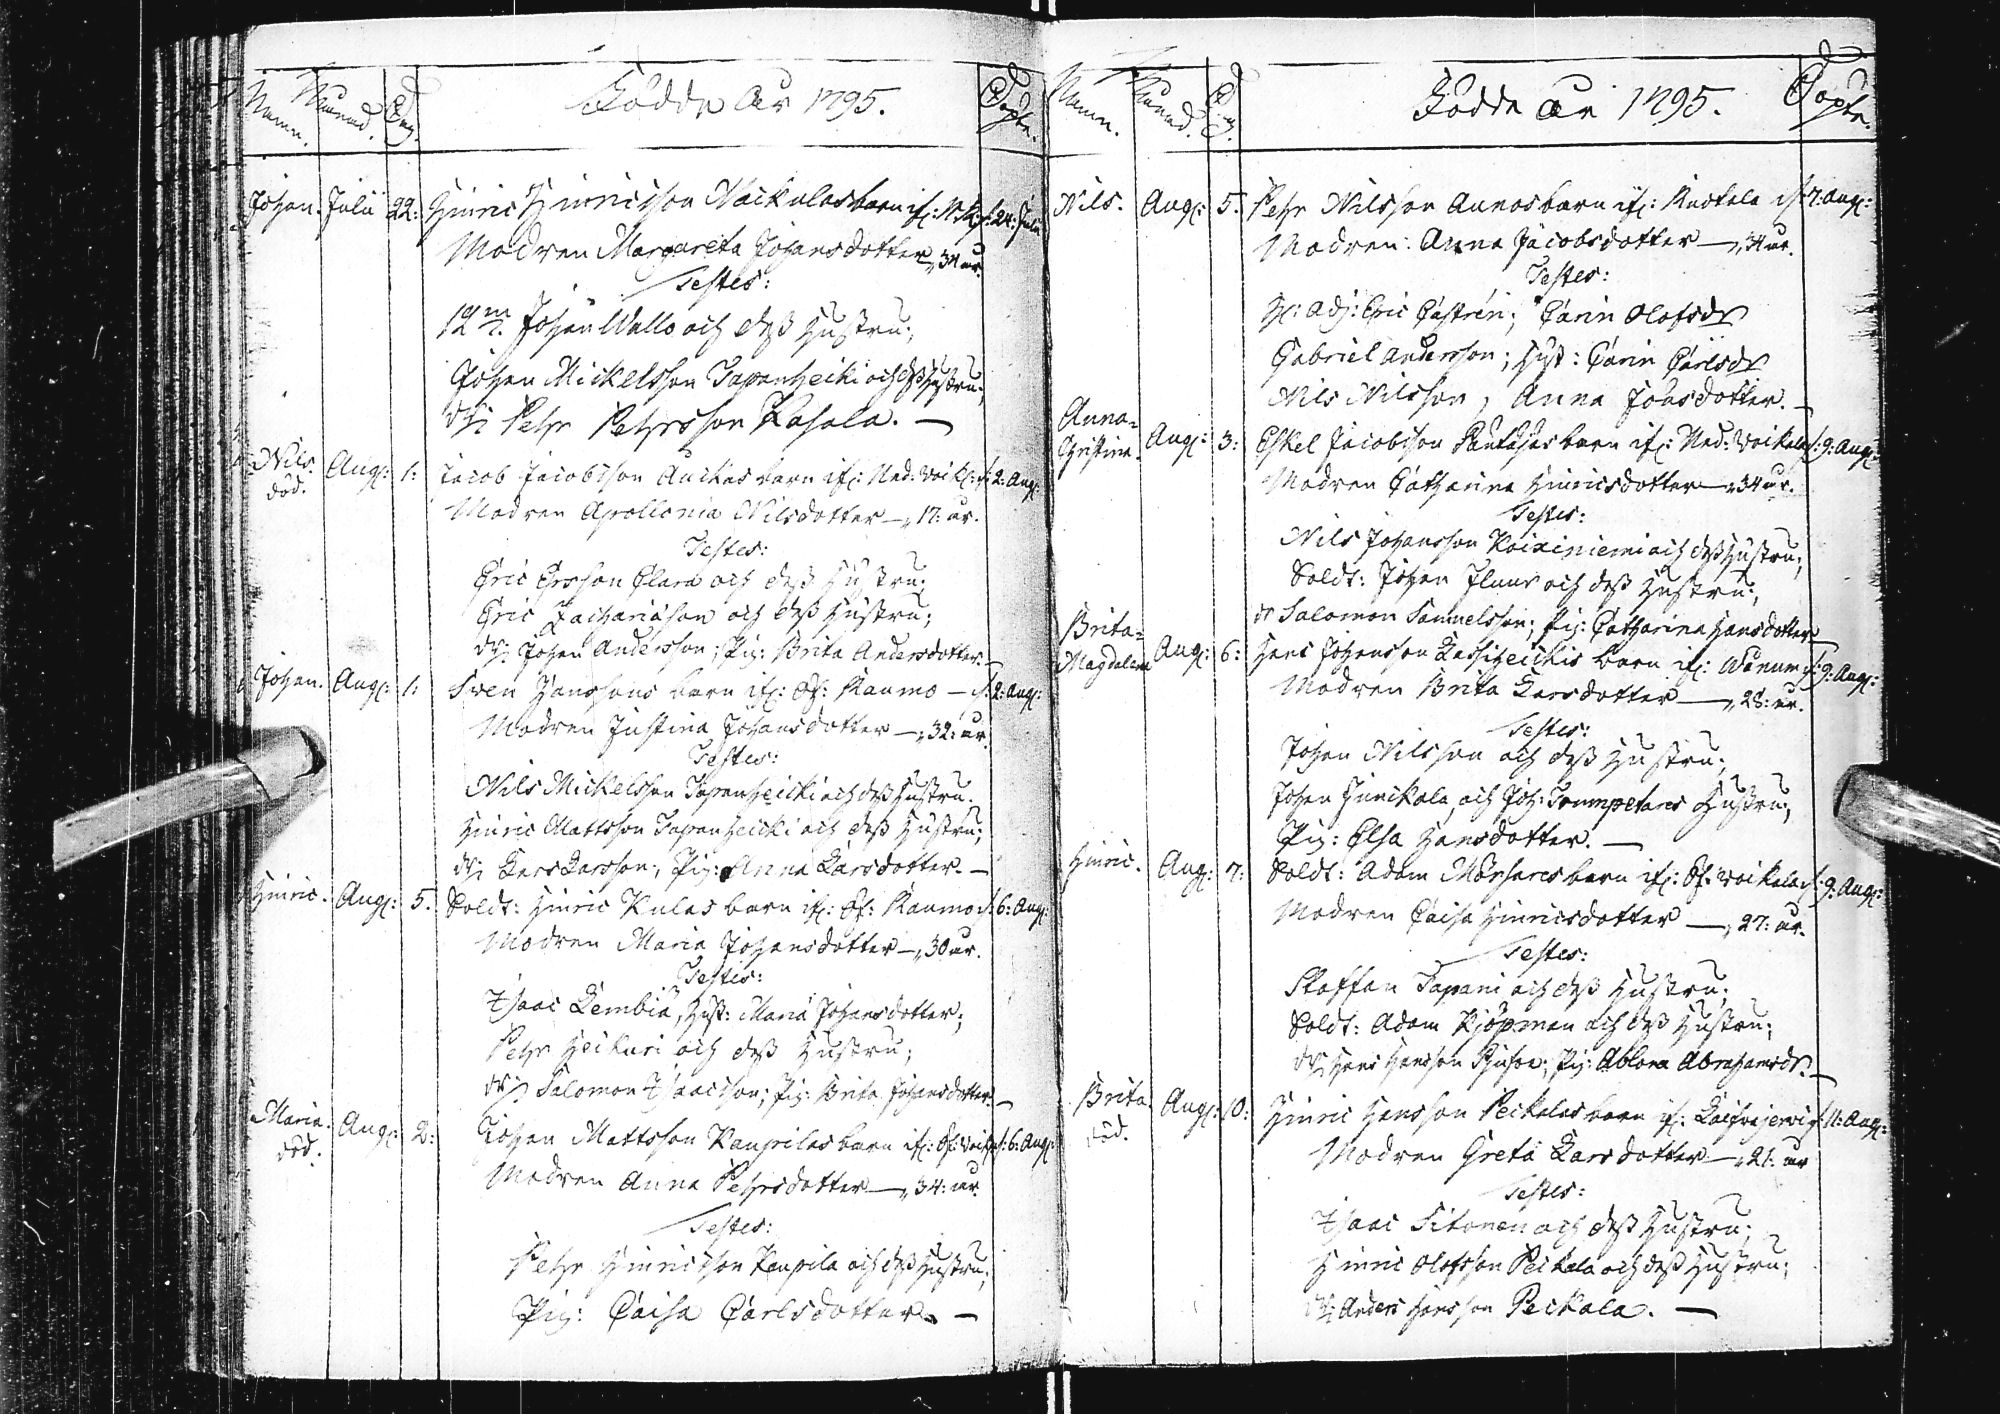 Namn. Månad. Dag. Födde År 1795. Döpte.
Johan. Julii 22: Hinric Hinricsson Naickulas barn if: N. K: f: 24: Julii
Modren Margareta Johansdotter —,, 34 år.
Testes:
Johan Wallo och dess hustru;
Johan Mickelsson Tapanheiki och dess hustru;
dr: Pehr Pehrsson Kasala. —
Nils. Aug: 1: Jacob Jacobsson Anickas barn if: Ned: Voick: f: 2: Aug:
död.
Modren Apollonia Nilsdotter —,, 17: år.
Testes:
Eric Ersson Clara och dess hustru;
Eric Zachariason och dess hustru;
dr: Johan Andersson; Pig: Brita Andersdotter. —
Johan. Aug: 1: Sven Hanssons barn if: Öf: Raumo — f: 2: Aug:
Modren Justina Johansdotter —,, 32: år.
Testes:
Nils Mickelsson Tapanheicki och dess hustru.
Hinric Mattsson Tapanheicki och dess hustru;
dr: Lars Larsson; Pig: Anna Larsdotter. —
Hinric. Aug: 5. Soldt: Hinric Kulas barn if: Öf: Raumo f: 6: Aug:
Modren Maria Johansdotter —,, 30 år.
Testes:
Isaac Lembiä, Hust: Maria Johansdotter;
Pehr Heikuri och dess hustru;
dr: Salomon Isaacsson; Pig: Brita Johansdotter. —
Maria. Aug: 2: Johan Mattsson Kaupilas barn if: Öf: Voick: f: 6: Aug:
död.
Modren Anna Pehrsdotter —,, 34: år.
Testes:
Pehr Hinricsson Kaupila och dess hustru;
Pig: Caisa Carlsdotter. —
Namn. Månad. Dag. Födde År 1795. Döpte.
Nils. Aug: 5. Pehr Nilsson Annas barn if: Kuckola f: 7: Aug:
Modren: Anna Jacobsdotter —,, 34 år.
Testes:
H: Adj: Eric Castrén; Carin Olofsdr
Gabriel Andersson; Hust: Carin Carlsdr
Nils Nilsson, Anna Johansdotter. —
Anna=
Christina. Aug: 3: Eskel Jacobsson Pantasas barn if: Ned: Voickala f: 9: Aug:
Modren Catharina Hinricsdotter —,, 34 år.
Testes:
Nils Johansson Koiviniemi och dess hustru;
Soldt: Johan och dess hustru;
dr Salomon Samuelsson; Pig: Catharina Hansdotter —
Brita=
Magdalena Aug: 6: Hans Johansson Lassiheickis barn if: Wånum f: 9: Aug:
Modren Brita Larsdotter —,, 28: år.
Testes:
Johan Nilsson och dess hustru;
Johan Junckala, och Joh: Trumpetares hustru;
Pig: Elsa Hansdotter. —
Hinric. Aug: 7: Soldt: Adam barn if: Öf: Voickala f: 9: Aug:
Modren Caisa Hinricsdotter —,, 27: år.
Testes:
Staffan Tapani och dess hustru;
Soldt: Adam Kjöpman och dess hustru;
dr: Hans Hansson Pig: Ablona Abrahamsdr. —
Brita Aug: 10: Hinric Hansson Peckalas barn if: f: 11: Aug:
död.
Modren Greta Larsdotter —,, 21: år
Testes:
Isaac Sitonen och dess hustru;
Hinric Olofsson Peckala och dess hustru;
dr: Anders Hansson Peckala. —